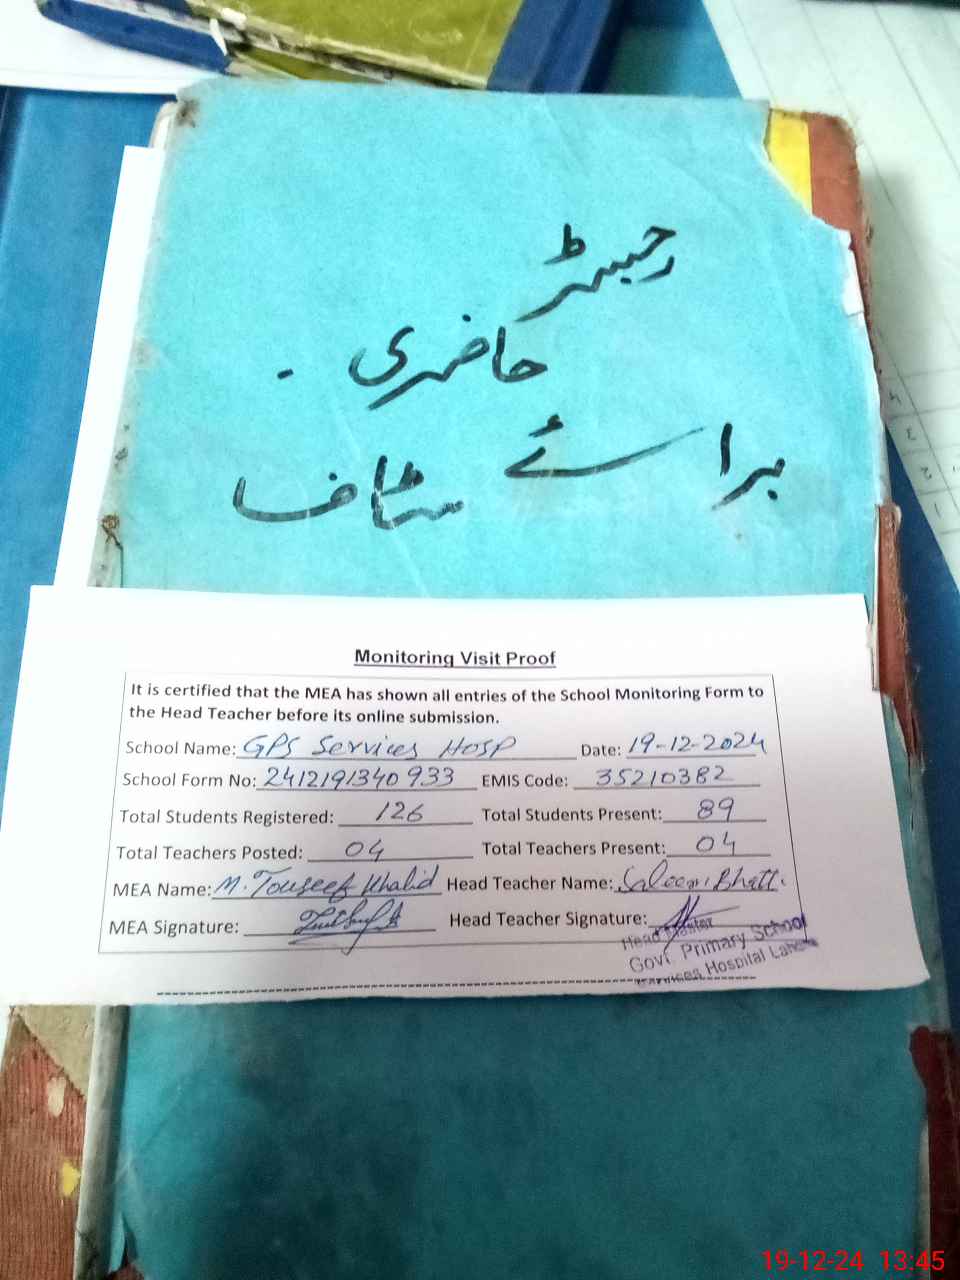 رجسٹر
حاضری -
برائے سٹاف
Monitoring Visit Proof
It is certified that the MEA has shown all entries of the School Monitoring Form to
the Head Teacher before its online submission.
School Name: GPS Services HOSP Date: 19-12-2024
School Form No: 2412191340933 EMIS Code: 35210382
Total Students Registered: 126 Total Students Present: 89
Total Teachers Posted: 04 Total Teachers Present: 04
MEA Name: M. Touseef Khalid Head Teacher Name: Saleem Bhatti
MEA Signature: Head Teacher Signature:
Head Master
Govt. Primary School
Services Hospital Lahore
19-12-24 13:45